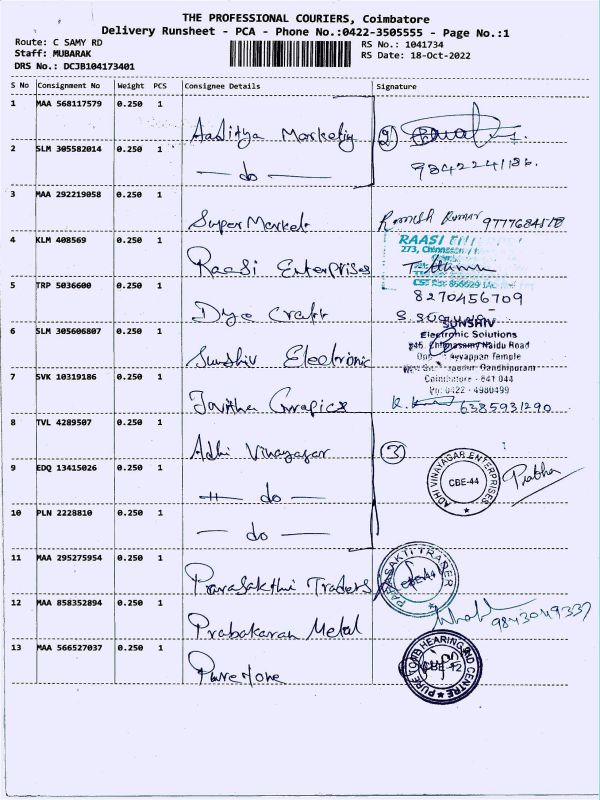 THE PROFESSIONAL COURIERS, Coimbatore
Delivery Runsheet - PCA - Phone No.:0422-3505555 - Page No.:1
Route: C SAMY RD
Staff: MUBARAK
DRS No.: DCJB104173401
RS No.: 1041734
RS Date: 18-Oct-2022
S No Consignment No Weight PCS Consignee Details Signature
1 MAA 568117579 0.250 1 Aaditya Marketing (2)
2 SLM 305582014 0.250 1 — do — 9842241186.
3 MAA 292219058 0.250 1 Super Market Ramesh Kumar
4 KLM 408569 0.250 1 Raasi Enterprises
RAASI
5 TRP 5036600 0.250 1 Dye Craft 8270456709
6 SLM 305606807 0.250 1 Sunshiv Electronic
SUNSHIV
Electronic Solutions
Naidu Road
Ayyappan Temple
Gandhipuram
Coimbatore - 641 044
Ph: 0422 - 4980499
7 SVK 10319186 0.250 1 Javitha Grapics 6385931290
8 TVL 4289507 0.250 1 Adhi Vinayagar (3)
ADHI VINAYAGAR ENTERPRISES
CBE-44
Prabha
9 EDQ 13415026 0.250 1 — do —
10 PLN 2228810 0.250 1 — do —
11 MAA 295275954 0.250 1 Parasakthi Traders
PARASAKTI TRADER
CBE-44
12 MAA 858352894 0.250 1 Prabakaran Metal 9843049337
13 MAA 566527037 0.250 1 Puretone
PURETONE HEARING AND CENTRE